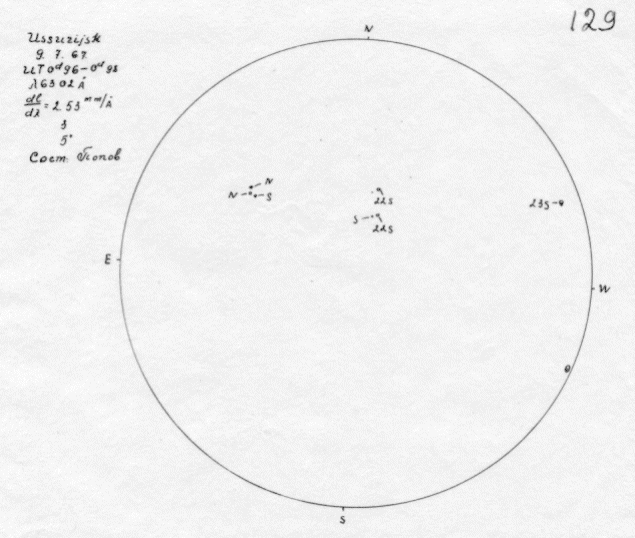 129
Ussurijsk
9. 7. 67.
UT 0ᵈ96-0ᵈ98
λ6302Å
dl/dλ = 2 53 mm/Å
3
5"
Сост. Попов
N
N
N S
22S
S
22S
23S
E
W
S